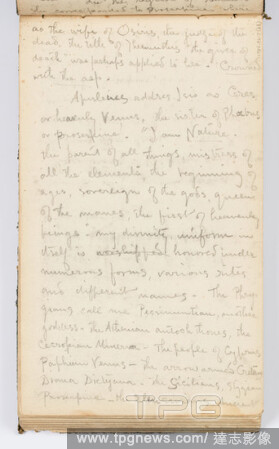 as the wife of Osiris, the judge of the
dead, the title of Themuthis "the giver of
death" was perhaps applied to her. Crowned
with the asp.
Apuleius addresses Isis as Ceres
or heavenly Venus, the sister of Phoebus
or proserpine. "I am Nature,
the parent of all things, mistress of
all the elements, the beginning of
ages, sovereign of the gods, queen
of the manes, the first of heavenly
beings. my divinity, uniform in
itself is honored under
numerous forms, various rites
and different names - The
call me Pessinuntica, mother
goddess - The Athenian autochthones, the
Cecropian Minerva - The people of Cyprus
Paphian Venus - The arrow armed Cretans
Diana Dictynna - The Sicilians, Stygian
Proserpine -
TPG
www.tpgnews.com/ 達志影像